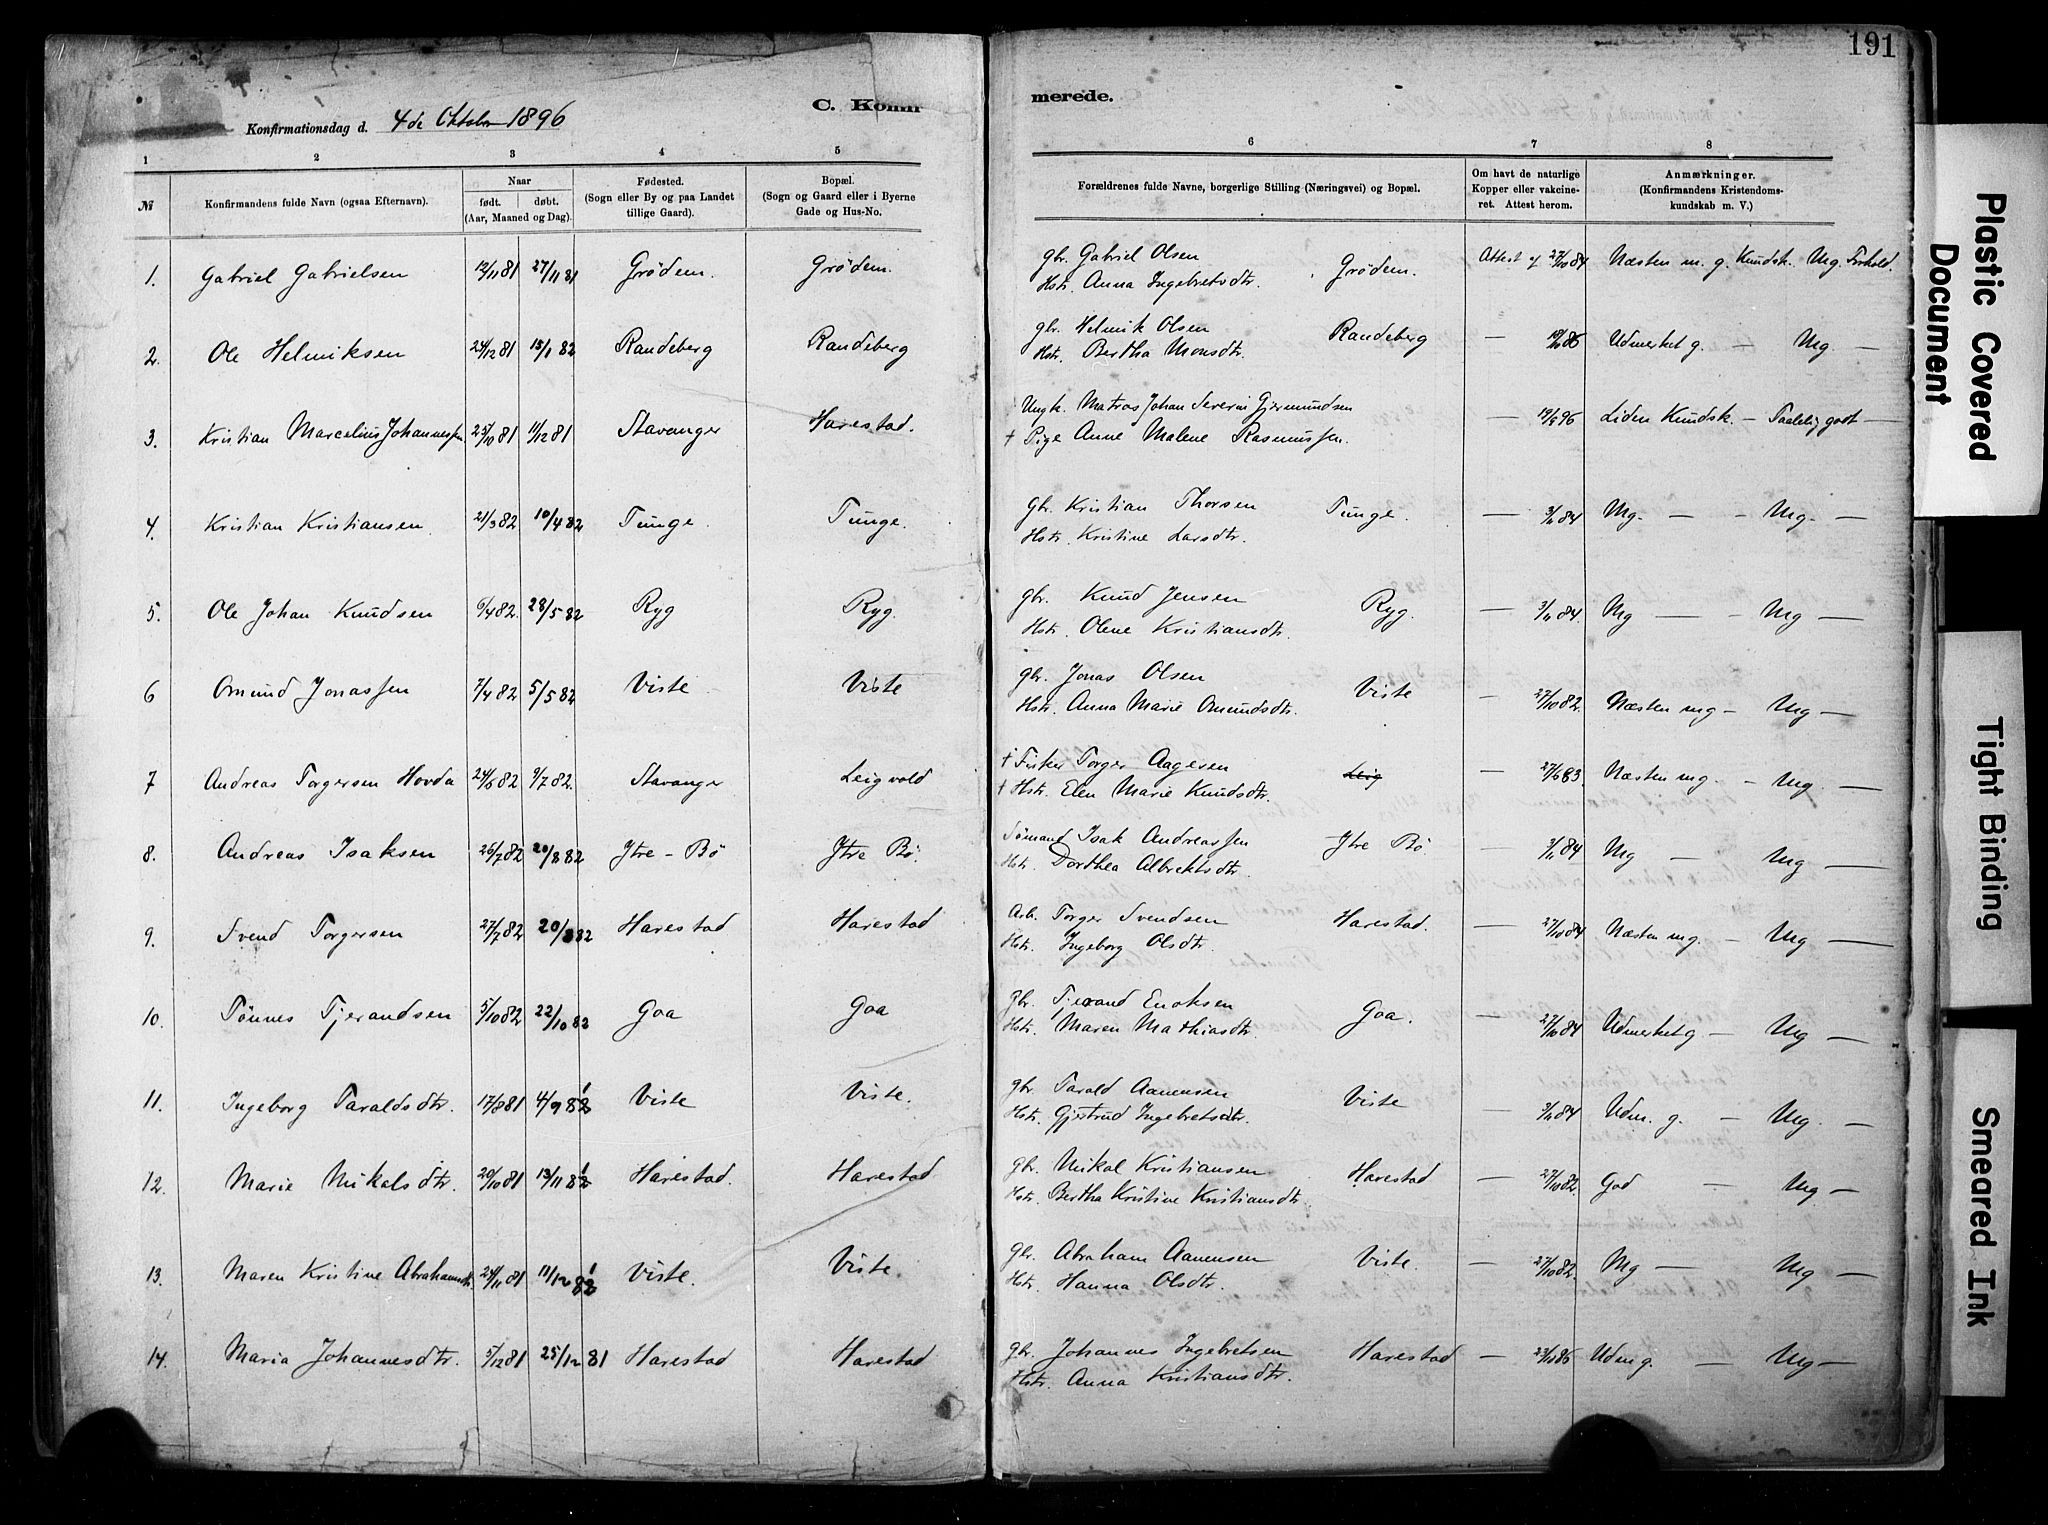 191
C. Konfir
merede.
Konfirmationsdag d. 4de Oktober 1896
1 2 3 4 5 6 7 8
№ Konfirmandens fulde Navn (ogsaa Efternavn). Naar født. døbt. (Aar, Maaned og Dag). Fødested. (Sogn eller By og paa Landet tillige Gaard). Bopæl. (Sogn og Gaard eller i Byerne Gade og Hus-No. Forældrenes fulde Navne, borgerlige Stilling (Næringsvei) og Bopæl. Om havt de naturlige Kopper eller vakcineret. Attest herom. Anmærkninger. (Konfirmandens Kristendomskundskab m. V.)
1. Gabriel Gabrielsen 12/11 81 27/11 81 Grødem. Grødem. gbr. Gabriel Olsen Grødem. Attest af 27/10 84 Næsten m. g. Kundsk. Mg. Forhold.
Hstr. Anna Ingebretsdtr.
2. Ole Helmiksen 24/12 81 15/1 82 Randeberg Randeberg gbr. Helmik Olsen Randeberg — 86 Udmerket g. — Mg. —
Hstr. Bertha Monsdtr.
3. Kristian Marcelius Johannessen 25/10 81 11/12 81 Stavanger Harestad. Ungk. Matros Johan Severin Gjermundsen — 96 Liden Kundsk. — Taalelig godt —
† Pige Anne Malene Rasmussen.
4. Kristian Kristiansen 21/3 82 10/4 82 Tunge. Tunge. gbr. Kristian Thorsen Tunge. — 3/11 84 Mg. — - Mg. —
Hstr. Kristine Larsdtr.
5. Ole Johan Knudsen 6/4 82. 28/5 82 Ryg Ryg. gbr. Knud Jensen Ryg. — 3/11 84. Mg — - Mg —
Hstr. Olene Kristiansdtr.
6 Omund Jonassen 7/4 82 5/5 82 Viste Viste gbr. Jonas Olsen Viste - 27/10 82. Næsten mg — Mg —
Hstr. Anna Marie Omundsdtr.
7 Andreas Torgersen Hovda 24/6 82 9/7 82. Stavanger Leigvold † Fisker Torger Aagesen Leig — 27/6 83. Næsten mg. - Mg. —
† Hstr. Elen Marie Knudsdtr.
8. Andreas Isaksen 26/7 82 20/8 82 Ytre-Bø Ytre Bø. Sømand Isak Andreassen Ytre Bø. — 3/11 84 Mg — Mg —
Hstr. Dorthea Albrektsdtr.
9. Svend Torgersen 27/7 82 20/8 82 Harestad Harestad Arb. Torger Svendsen Harestad. — 27/10 84 Næsten mg. — Mg —
Hstr. Ingeborg Olsdtr.
10. Tønnes Tjerandsen 5/10 82 22/10 82 Goa Goa gbr. Tjerand Enoksen Goa. — 27/10 84 Udmerket g — Mg —
Hstr. Maren Mathiasdtr.
11. Ingeborg Taraldsdtr. 17/8 81 4/9 81 Viste Viste. gbr. Tarald Aanensen Viste — 3/11 84 Udm. g. — Mg. —
Hstr. Gjertrud Ingebretsdtr.
12. Marie Mikalsdtr. 20/10 81 13/11 81 Harestad. Harestad. gbr. Mikal Kristiansen Harestad — 27/10 82. God — Mg —
Hstr. Bertha Kristine Kristiansdtr.
13. Maren Kristine Abrahamsdtr. 24/11 81 11/12 81 Viste. Viste. gbr. Abraham Aanensen Viste. — 27/10 82. Mg — Mg —
Hstr. Hanna Olsdtr.
14. Maria Johannesdtr. 5/12 81 25/12 81 Harestad Harestad gbr. Johannes Ingebretsen Harestad — 86 Udm g. — Mg —
Hstr. Anna Kristiansdtr.
Plastic Covered Document
Tight Binding
Smeared Ink